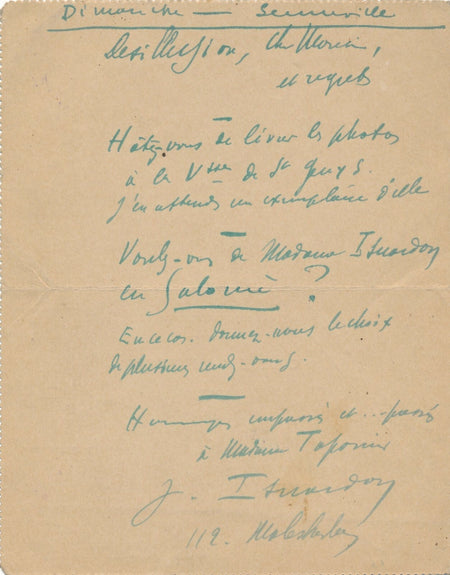 Dimanche — Senneville
Desillusion, cher Monsieur,
et regrets
—
Hâtez-vous de livrer les photos
à la Vtesse de St Guys.
j'en attends un exemplaire d'elle
—
Voulez-vous de Madame Isnardon
en Salomé ?
En ce cas. donnez-nous le choix
de plusieurs rendez-vous.
—
Hommages et
à Madame Taponier
J. Isnardon
112. Malesherbes